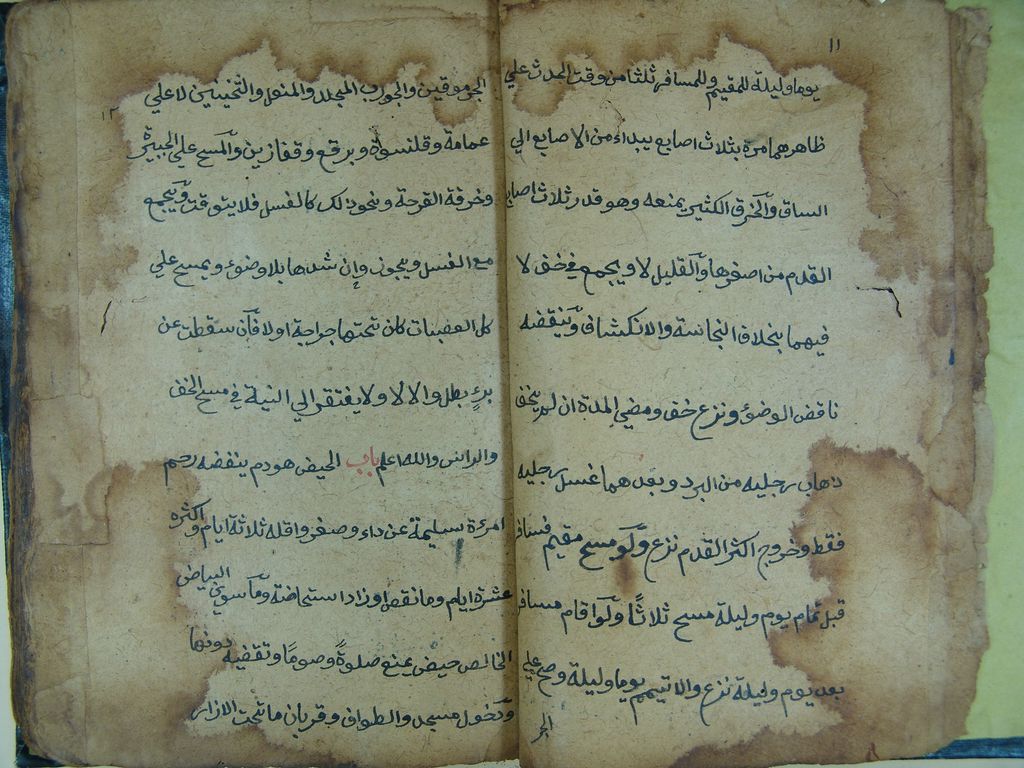 ١١
يوما وليلة للمقيم وللمسافر ثلثا من وقت الحدث علي
ظاهرهما مرة بثلاث اصابع يبداء من الاصابع الي
الساق والخرق الكثير يمنعه وهو قدر ثلاث اصابع
القدم من اصغرها والقليل لا ويجمع في خف لا
فيهما بخلاف النجاسة والانكشاف وينقضه
ناقض الوضوء ونزع خف ومضي المدة ان لم يخف
ذهاب رجليه من البرد وبعدهما غسل رجليه
فقط وخروج اكثر القدم نزع ولو مسح مقيم فسافر
قبل تمام يوم وليلة مسح ثلاثًا ولو اقام مسافر
بعد يوم وليلة نزع والا تيمم يوما وليلة وصح علي
الجر
١٢
الجرموقين والجورب المجلد والمنعل والثخينين لا علي
عمامة وقلنسوة وبرقع وقفازين والمسح علي الجبيرة
وخرقة القرحة ونحو ذلك كالغسل فلا يتوقت ويجمع
مع الغسل ويجوز وإن شدها بلا وضوء ويمسح علي
كل العصبات كان تحتها جراحة او لا فان سقطت عن
برءٍ بطل والا لا ولا يفتقر الي النية في مسح الخف
والراس والله اعلم باب الحيض هو دم ينفضه رحم
امرءة سليمة عن داء وصغر واقله ثلاثة ايام واكثره
عشرة ايام وما نقص او زاد استحاضة وما سوي البياض
الخالص حيض يمنع صلوةً وصومًا وتقضيه دونها
ودخول مسجد والطواف وقربان ما تحت الازار